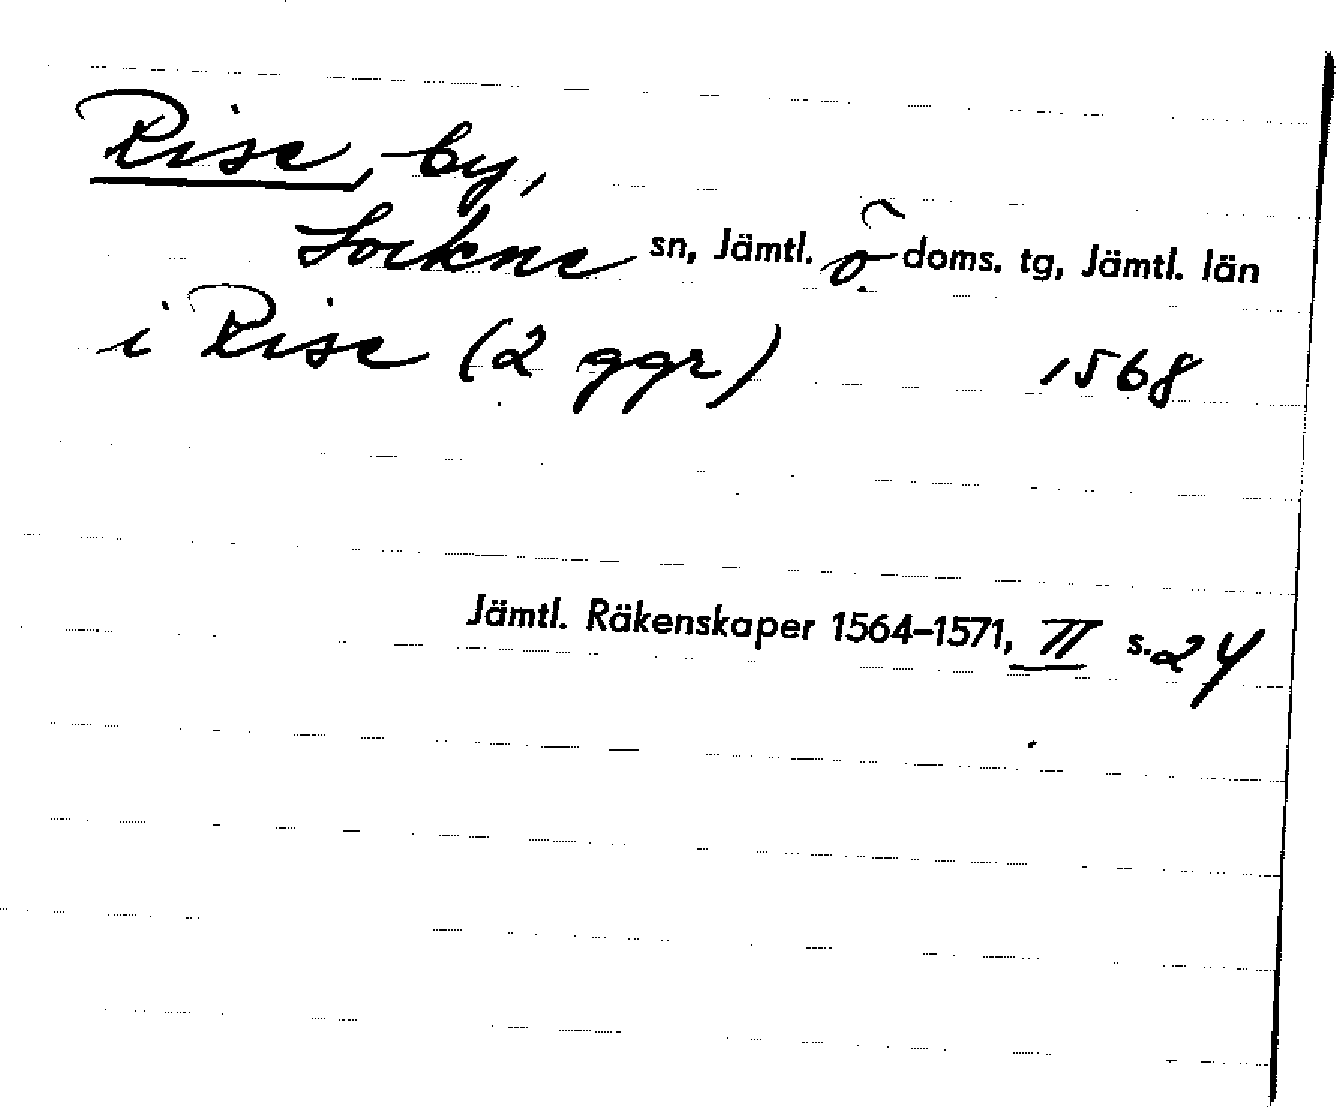 Rise, by,
Lockne sn, Jämtl. ö. doms. tg, Jämtl. län
i Rise (2 ggr) 1568
Jämtl. Räkenskaper 1564–1571, II s. 24